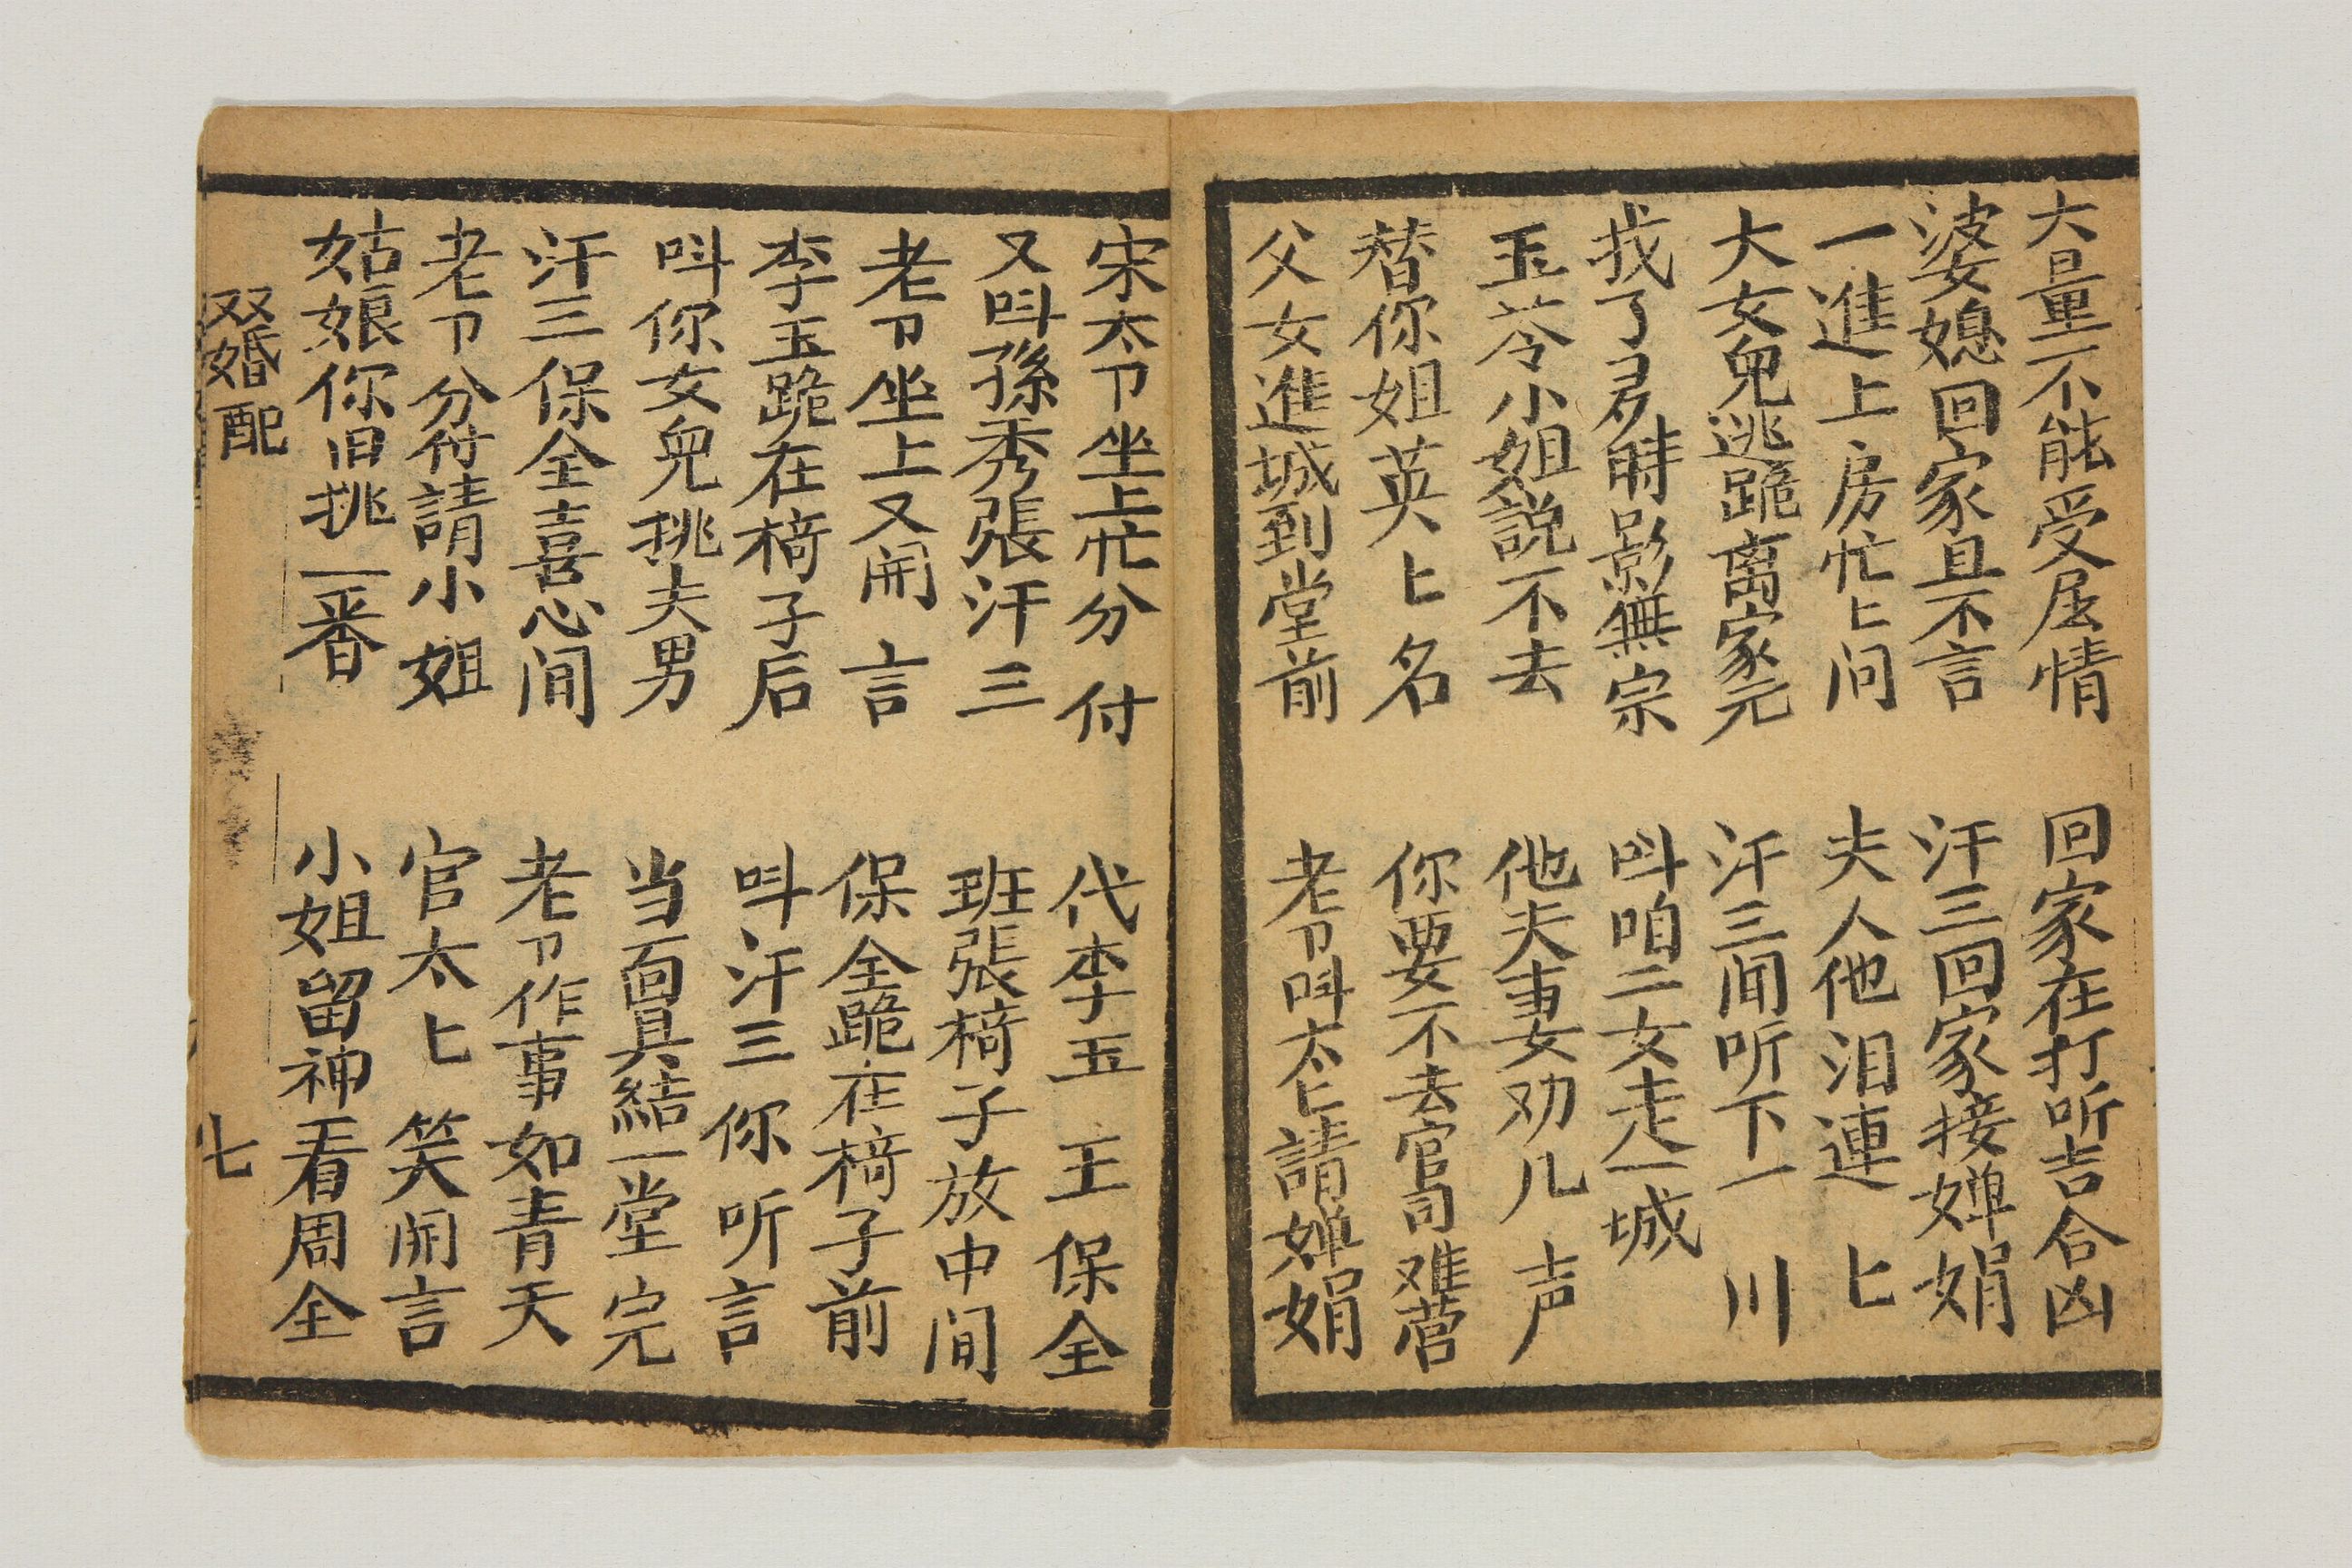 大量不能受屈情　回家在打听吉合凶
婆媳回家且不言　汗三回家接婵娟
一進上房忙匕问　夫人他泪連匕
大女兒逃跪离家元　汗三闻听下一川
找了多時影無宗　呌咱二女走一城
玉苓小姐説不去　他夫妻劝几声
替你姐英匕名　你要不去官司难营
父女進城到堂前　老卩呌太匕請婵娟
宋太卩坐上忙分付　代李玉王保全
又呌孫秀張汗三　班張椅子放中间
老卩坐上又闹言　保全跪在椅子前
李玉跪在椅子后　呌汗三你听言
呌你女兒挑夫男　当面具結一堂完
汗三保全喜心间　老卩作事如青天
老卩分付請小姐　官太匕笑闹言
姑娘你旧挑一番　小姐留神看周全
双婚配　七